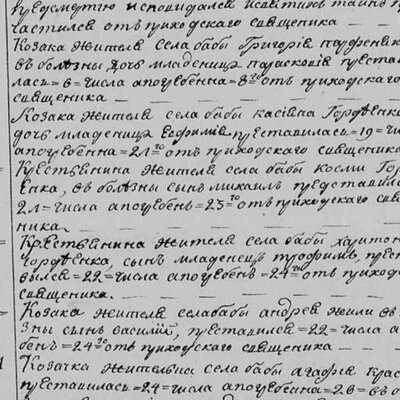 предсмертию исповѣдался исвятихъ таинъ при
частился отъ приходскаго священика
Козака жителя села бабы Григорія парфенѣв
въ болѣзны дочь младеница парасковія преста
лась = 6 = числа апогребенна = 8го отъ приходскаго
священика
Козака жителя села бабы касіяна Гордѣенка
дочь младеница Еѳимія преставилась = 19 = чис
апогребенна = 21го отъ приходскаго священика
Крествянина жителя села бабы космы Гор
Енка, въ болѣзны сынъ михаилъ представилс
2л = числа апогребенъ = 23го отъ приходскаго свя
ника.
Крествянина жителя села бабы харитон
Гордѣенка, сынъ младенецъ трофимъ, прест
вился = 22 = числа апогребенъ = 24го отъ приход
священика.
Козака жителя села бабы андрея жили въ
зны сынъ василій, преставился = 22 = числа а
бенъ = 24го отъ приходскаго священика
Козачка жителна села бабы агафія Крас
преставилась = 24 = числа апогребенна = 26 = въ